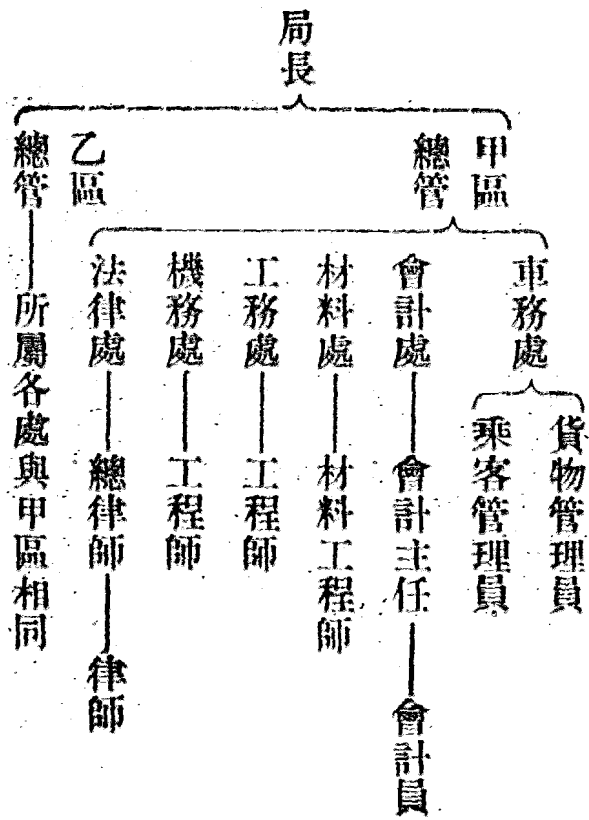 局長
甲區
總管
車務處
貨物管理員
乘客管理員
會計處
會計主任
會計員
材料處
材料工程師
工務處
工程師
機務處
工程師
法律處
總律師
律師
乙區
總管
所屬各處與甲區相同